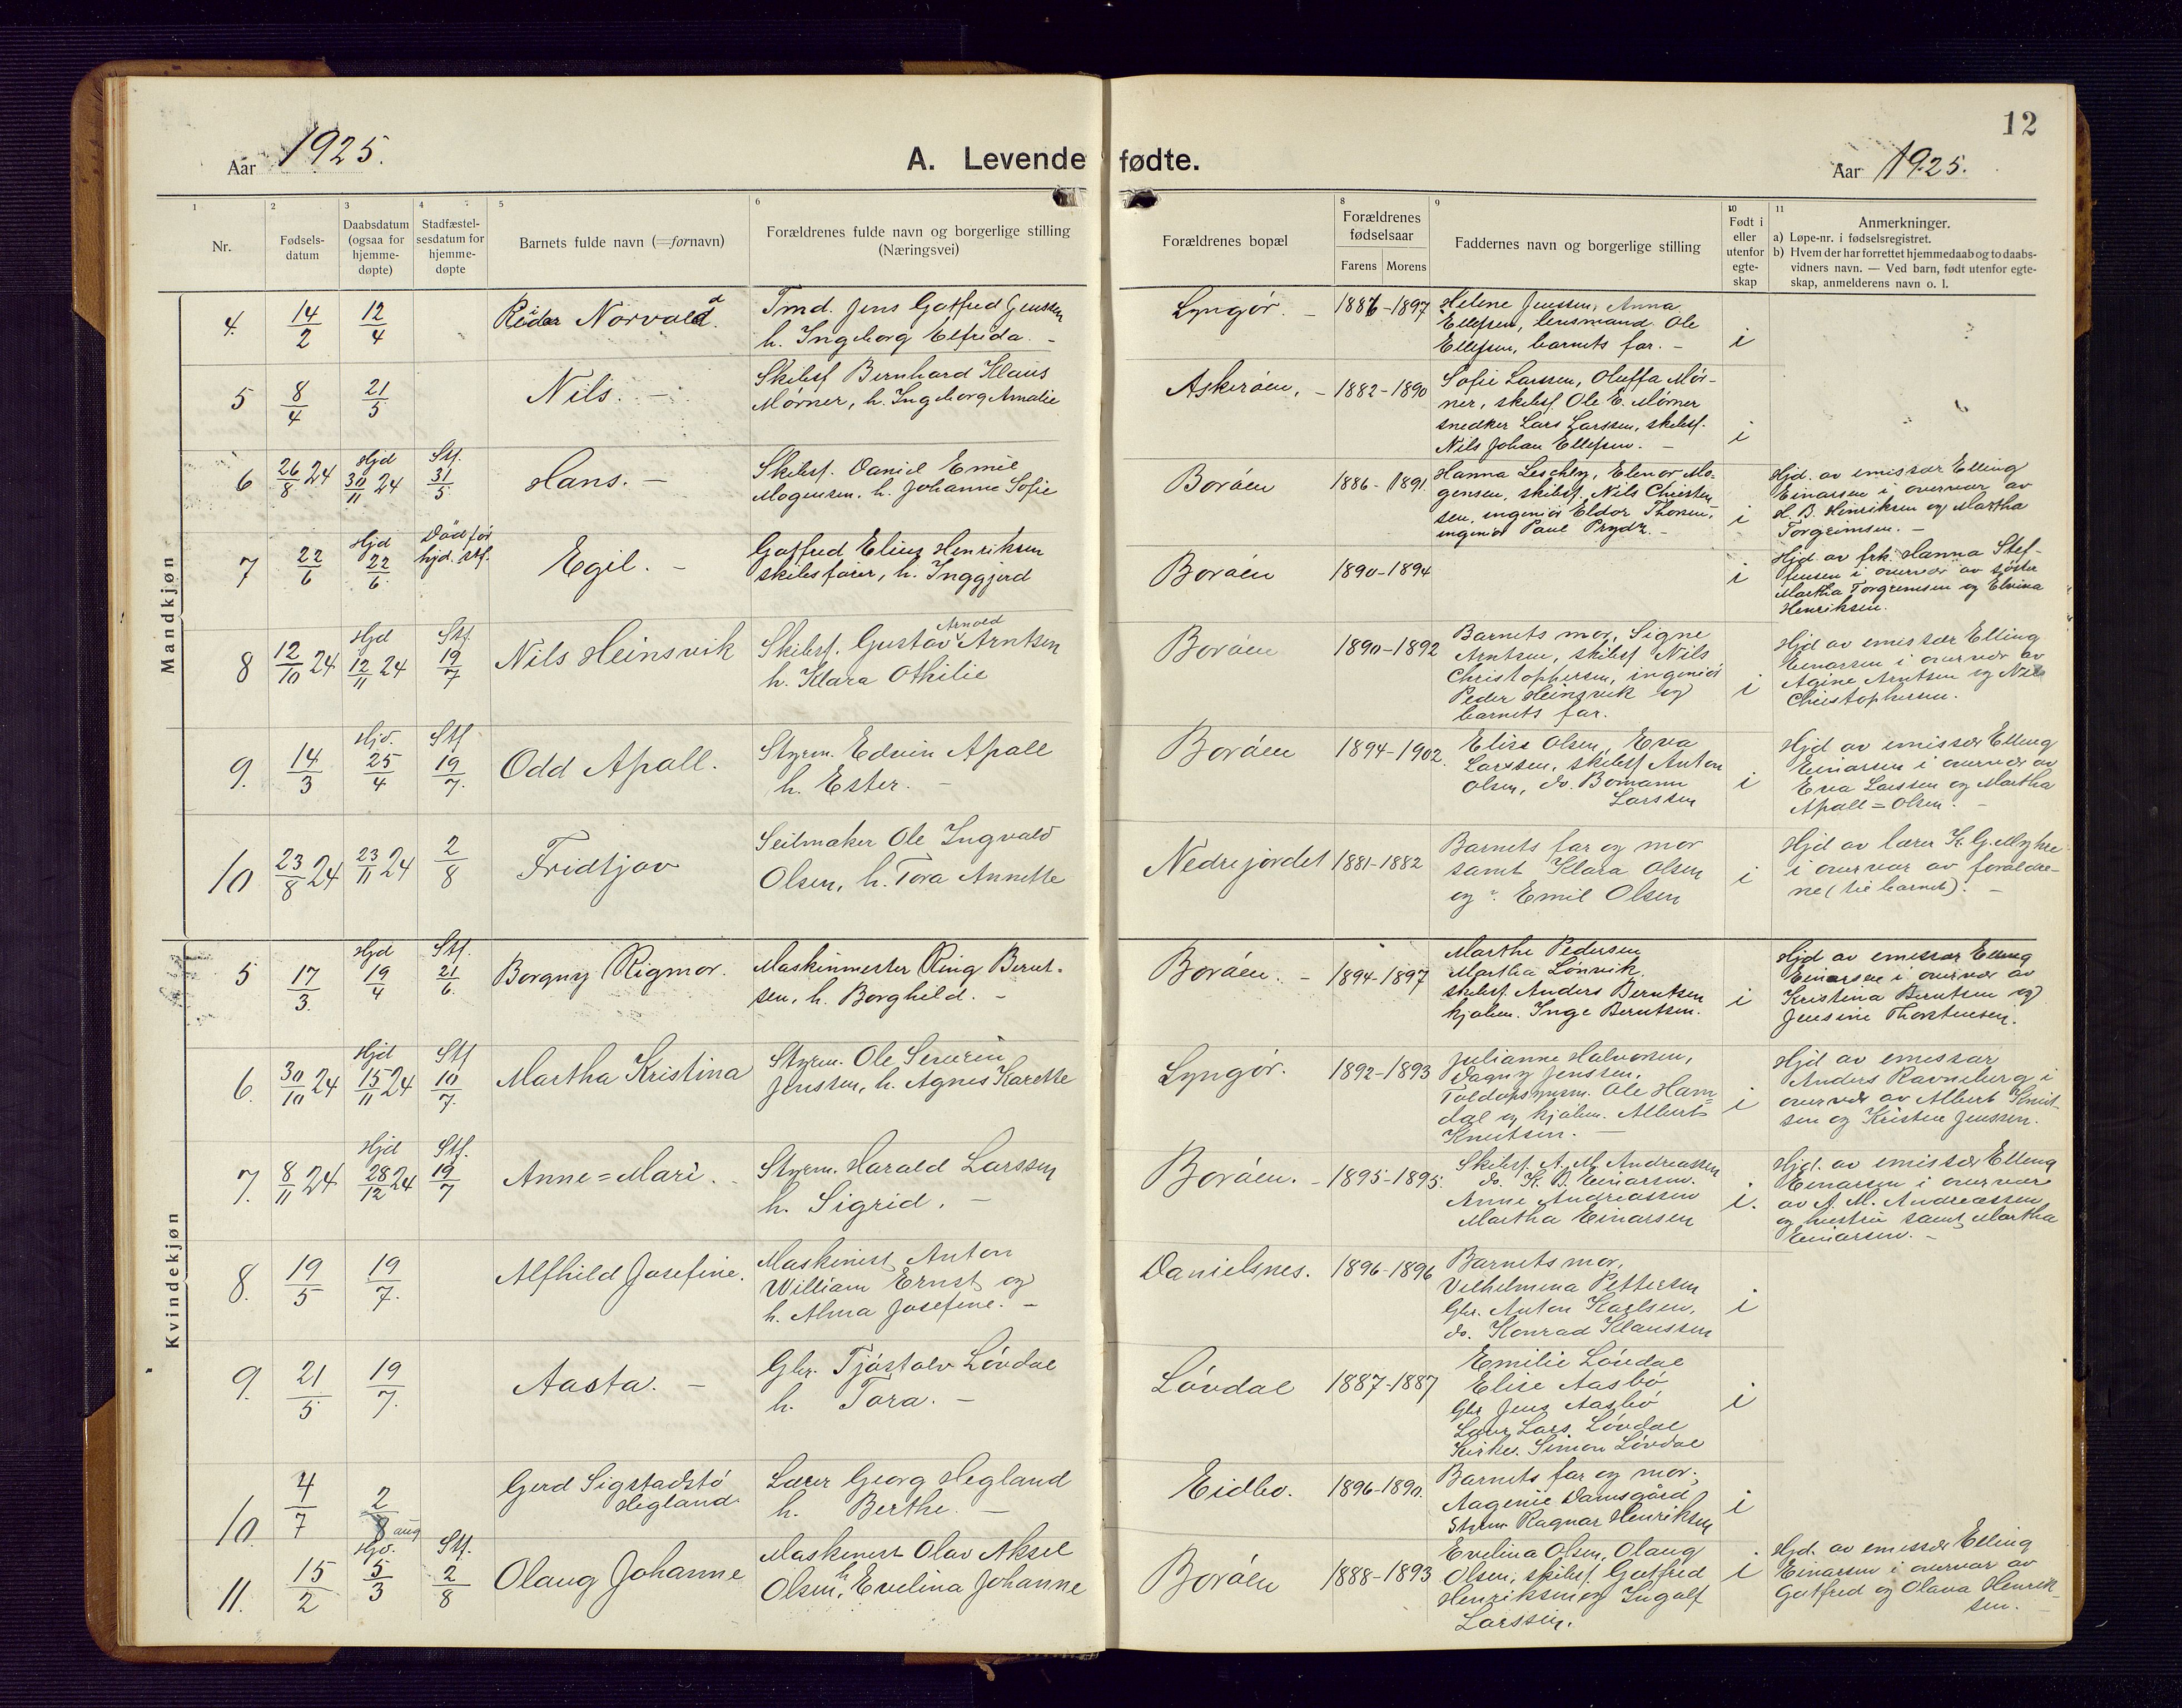 12
Aar 1925.
A. Levende fødte.
Aar 1925.
1 2 3 4 5 6 7 8 9 10 11
Nr.
Fødsels-
datum
Daabsdatum
(ogsaa for
hjemme-
døpte)
Stadfæstel-
sesdatum for
hjemme-
døpte
Barnets fulde navn (=fornavn)
Forældrenes fulde navn og borgerlige stilling
(Næringsvei)
Forældrenes bopæl
Forældrenes
fødselsaar
Farens Morens
Faddernes navn og borgerlige stilling
Født i
eller
utenfor
egte-
skap
Anmerkninger.
a) Løpe-nr. i fødselsregistret.
b) Hvem der har forrettet hjemmedaab og to daabs-
vidners navn. — Ved barn, født utenfor egte-
skap, anmelderens navn o. l.
Mandkjøn
4. 14/2 12/4 Reidar Norvald.
Tmd. Jens Gotfred Jenssen
h. Ingeborg Elfrida. -
Lyngør. - 1886-1897
Helene Jenssen, Anna
Ellefsen, lensmand Ole
Ellefsen, barnets far. -
i
5 8/4 21/5 Nils. -
Skibsf Bernhard Klaus
Mørner, h. Ingeborg Amalie
Askerøen, - 1882-1890
Sofie Larssen, Oluffa Mør-
ner, skibsf. Ole E. Mørner
snedker Lars Larssen, skibsf.
Nils Johan Ellefsen. -
i
6 26/8 24 Hjd 30/11 24 Stf. 31/5 Hans. -
Skibsf. Daniel Emil
Mogensen. h. Johanne Sofie
Borøen 1886-1891.
Hanna Leschly, Elenor Mo-
gensen, skibsf. Nils Christen
sen, ingeniør Eldor Thorsen,
ingeniør Paul Prydz. -
i
Hjd. av emissær Elling
Einarsen i overvær av
H. B. Henriksen og Martha
Torgrimsen. -
7 22/6 Hjd 22/6. Død før hjd. stf. Egil. -
Gotfred Elius Henriksen
skibsfører, h. Inggjerd
Borøen 1890-1894
i
Hjd av frk. Hanna Stef-
fensen i overvær av søster
Martha Torgrimsen og Elvina
Henriksen.
8 12/10 24 Hjd 12/11 24 Stf. 19/7 Nils Heinsvik
Arnold
Skibsf. Gustav Arntsen
h. Klara Othilie
Borøen 1890-1892
Barnets mor, Signe
Arntsen, skibsf Nils
Christophersen, ingeniør
Peder Heinsvik og
barnets far.
i
Hjd av emissær Elling
Einarsen i overvær av
Agine Arntsen og Nils
Christophersen.
9. 14/3 Hjd. 25/4 Stf 19/7. Odd Apall.
Styrm. Edvin Apall
h. Ester. -
Borøen 1894-1902.
Elise Olsen, Eva
Larssen, skibsf Anton
Olsen, do. Bomann
Larssen
i
Hjd av emissær Elling
Einarsen i overvær av
Eva Larssen og Martha
Apall=Olsen. -
10 23/8 24 23/11 24 2/8 Fridtjov
Seilmaker Ole Ingvald
Olsen, h. Tora Annette
Nedrejordet 1881-1882
Barnets far og mor
samt Klara Olsen
og Emil Olsen
i
Hjd av lærer K. G. Myhre
i overvær av forældre-
ne (til barnet). -
Kvindekjøn
5 17/3. Hjd 19/4 Stf. 21/6. Borgny Rigmor.
Maskinmester Ring Bernt-
sen, h. Borghild. -
Borøen. - 1894-1897
Marthe Pedersen
Martha Lønvik.
skibsf. Anders Berntsen
kjøbm. Inge Berntsen.
i
Hjd av emissær Elling
Einarsen i overvær av
Kristina Berntsen og
Jensine Thorstensen.
6. 30/10 24 Hjd 15/11 24 Stf 10/7. Martha Kristina
Styrm. Ole Severin
Jenssen, h. Agnes Karette
Lyngør. 1892-1893
Julianne Halvorsen,
Dagny Jenssen,
Toldopsynsm. Ole Ham-
dal og kjøbm. Albert
Knutsen. -
i
Hjd av emissær
Anders Ravneberg i
overvær av Albert Knut-
sen og Kristen Jenssen.
7. 8/11 24 Hjd 28/12 24 Stf. 19/7 Anne=Mari. -
Styrm. Harald Larssen
h. Sigrid. -
Borøen. - 1895-1895.
Skibsf. A. M. Andreassen
do. K. B. Einarsen.
Anne Andreassen
Martha Einarsen
i.
Hjd. av emissær Elling
Einarsen i overvær
av A. M. Andreassen
og hustru samt Martha
Einarsen. -
8. 19/5 19/7. Alfhild Josefine.
Maskinist Anton
William Ernst og
h. Alma Josefine. -
Danielsnes. 1896-1896
Barnets mor,
Vilhelmina Pettersen
Gbr. Anton Karlsen,
do. Konrad Klaussen
i
9. 21/5 19/7. Aasta. -
Gbr. Tjøstolv Løvdal
h. Tora. -
Løvdal 1887-1887
Emilie Løvdal
Elise Aasbø
Gbr Jens Aasbø
Lars Løvdal
Kirkes. Simon Løvdal
i
10. 4/7 2/8 aug Gerd Sigstadstø
Hegland
Lærer Georg Hegland
h. Berthe. -
Eidbo. 1896-1890.
Barnets far og mor,
Aagenie Damsgård
Styrm Ragnar Henriksen
i
11. 15/2 Hjd. 5/3 Stf. 2/8 Olaug Johanne
Maskinist Olav Aksel
Olsen, h Evelina Johanne
Borøen 1888-1893
Evelina Olsen, Olaug
Olsen, skibsf. Gotfred
Henriksen og Ingolf
Larssen.
i
Hjd. av emissær Elling
Einarsen i overvær av
Gotfred og Olava Henrik
sen. -